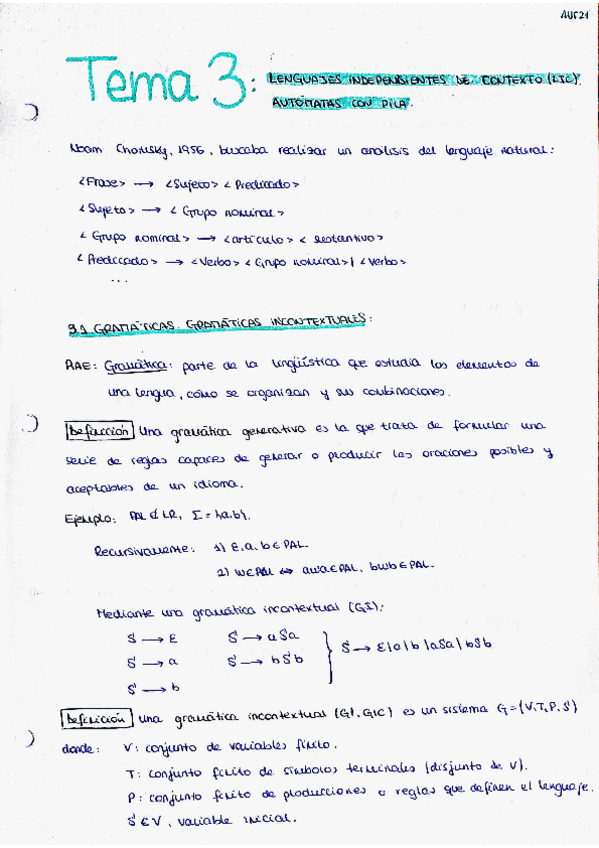 AUT 21
Tema 3: LENGUAJES INDEPENDIENTES DE CONTEXTO (LIC).
AUTÓMATAS CON PILA.
Noam Chomsky, 1956, buscaba realizar un análisis del lenguaje natural:
<Frase> → <Sujeto> <Predicado>
<Sujeto> → <Grupo nominal>
<Grupo nominal> → <artículo> <sustantivo>
<Predicado> → <Verbo> <Grupo nominal> | <Verbo>
...
3.1 GRAMÁTICAS. GRAMÁTICAS INCONTEXTUALES:
RAE: Gramática: parte de la lingüística que estudia los elementos de
una lengua, cómo se organizan y sus combinaciones.
Definición Una gramática generativa es la que trata de formular una
serie de reglas capaces de generar o producir las oraciones posibles y
aceptables de un idioma.
Ejemplo: PAL ∉ LR, Σ = {a,b}.
Recursivamente: 1) ε, a, b ∈ PAL.
2) w ∈ PAL ↔ awa ∈ PAL, bwb ∈ PAL.
Mediante una gramática incontextual (GI):
S → ε S → aSa
S → a S → bSb } S → ε|a|b|aSa|bSb
S → b
Definición una gramática incontextual (GI, GIC) es un sistema G = (V,T,P,S)
donde: V: conjunto de variables finito.
T: conjunto finito de símbolos terminales (disjunto de V).
P: conjunto finito de producciones o reglas que definen el lenguaje.
S ∈ V, variable inicial.